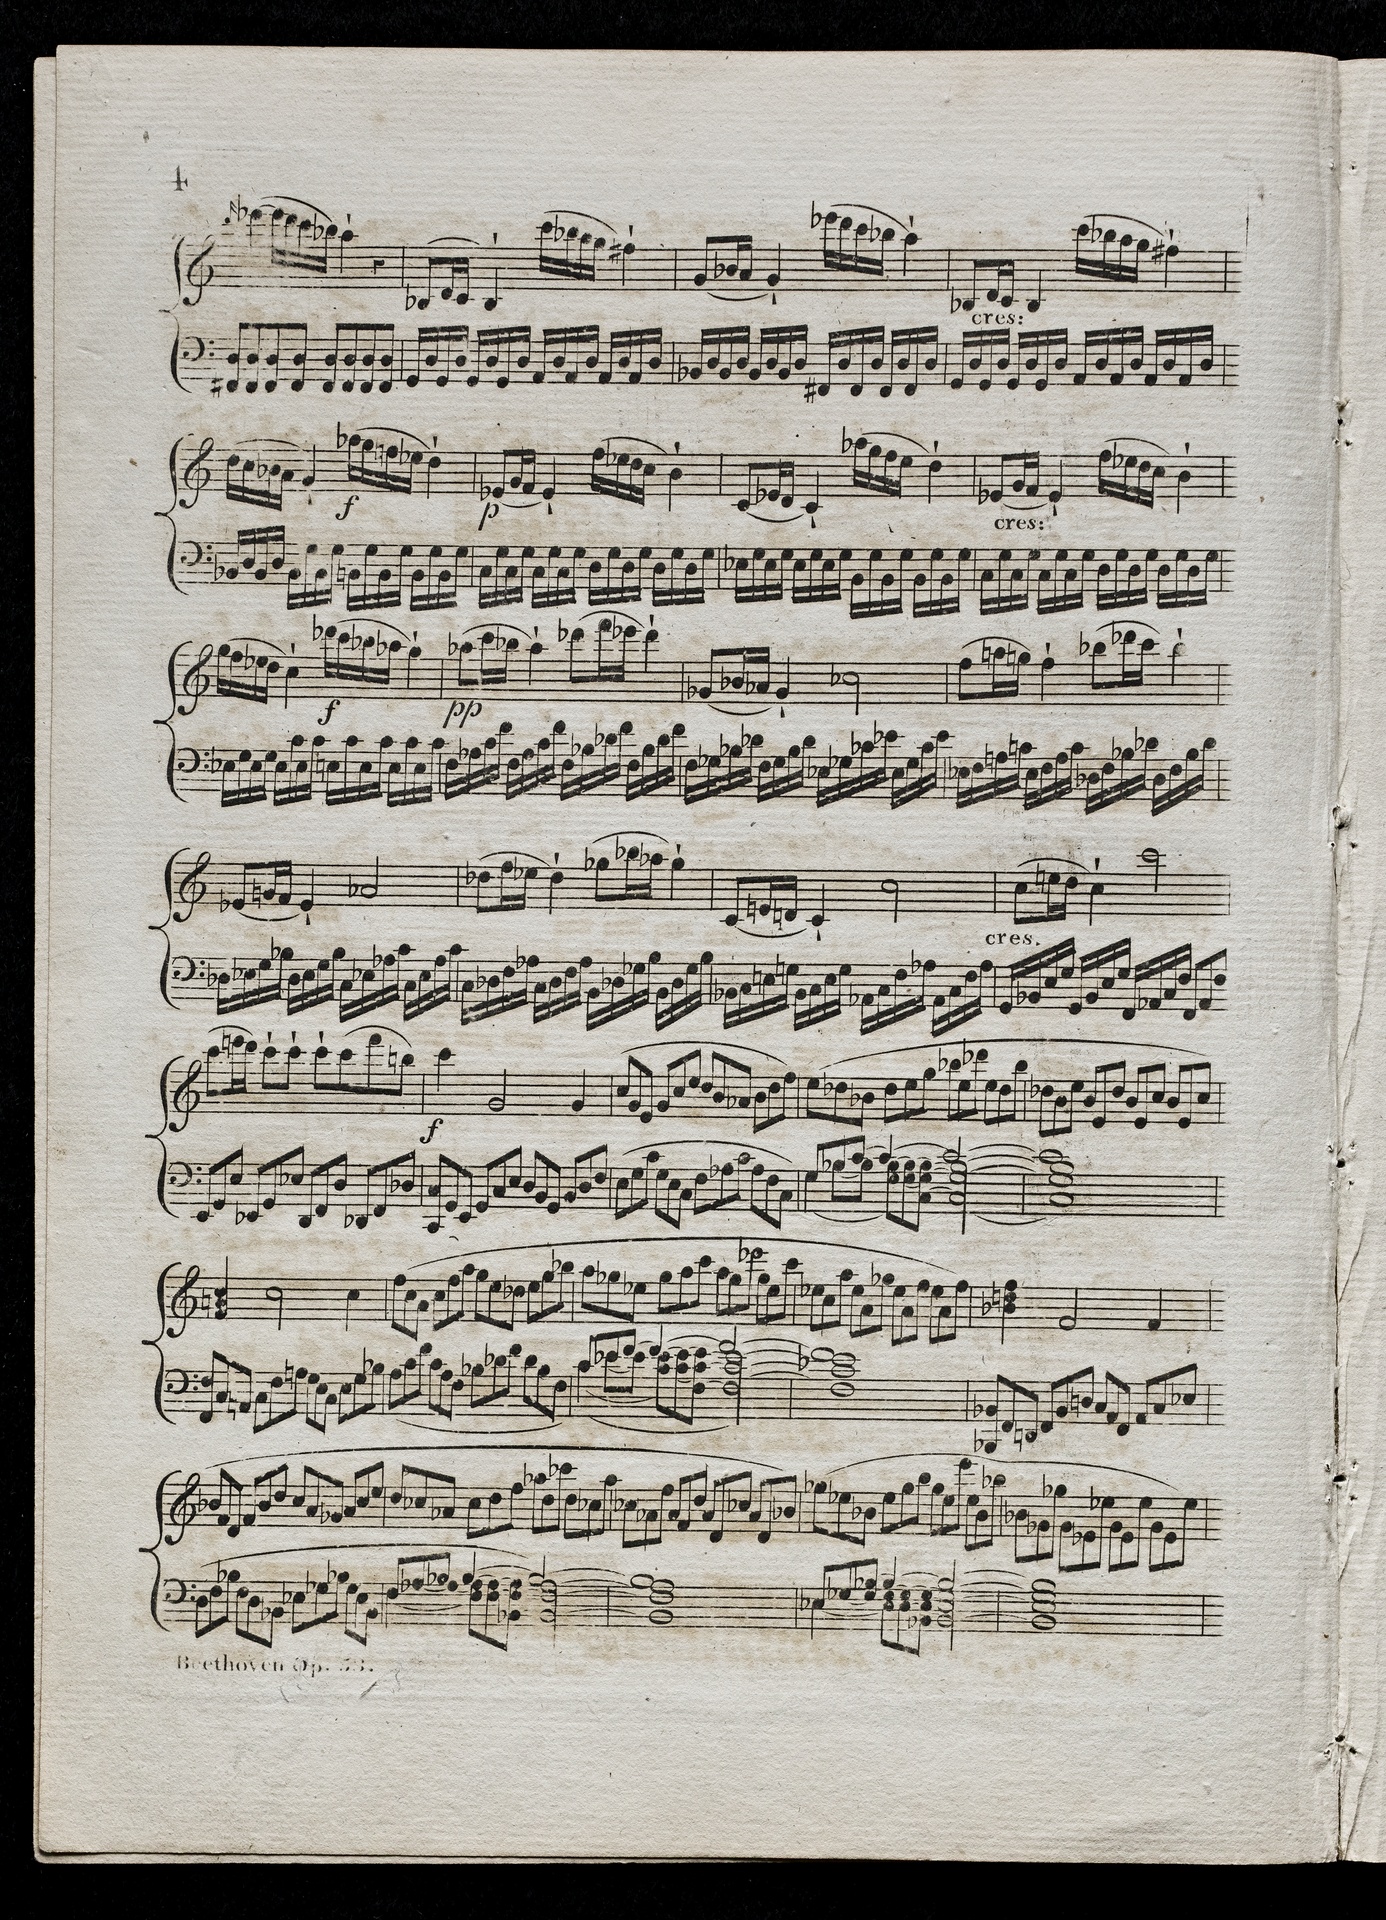 4
cres:
f
p
cres:
f
pp
cres.
f
Beethoven Op. 53.